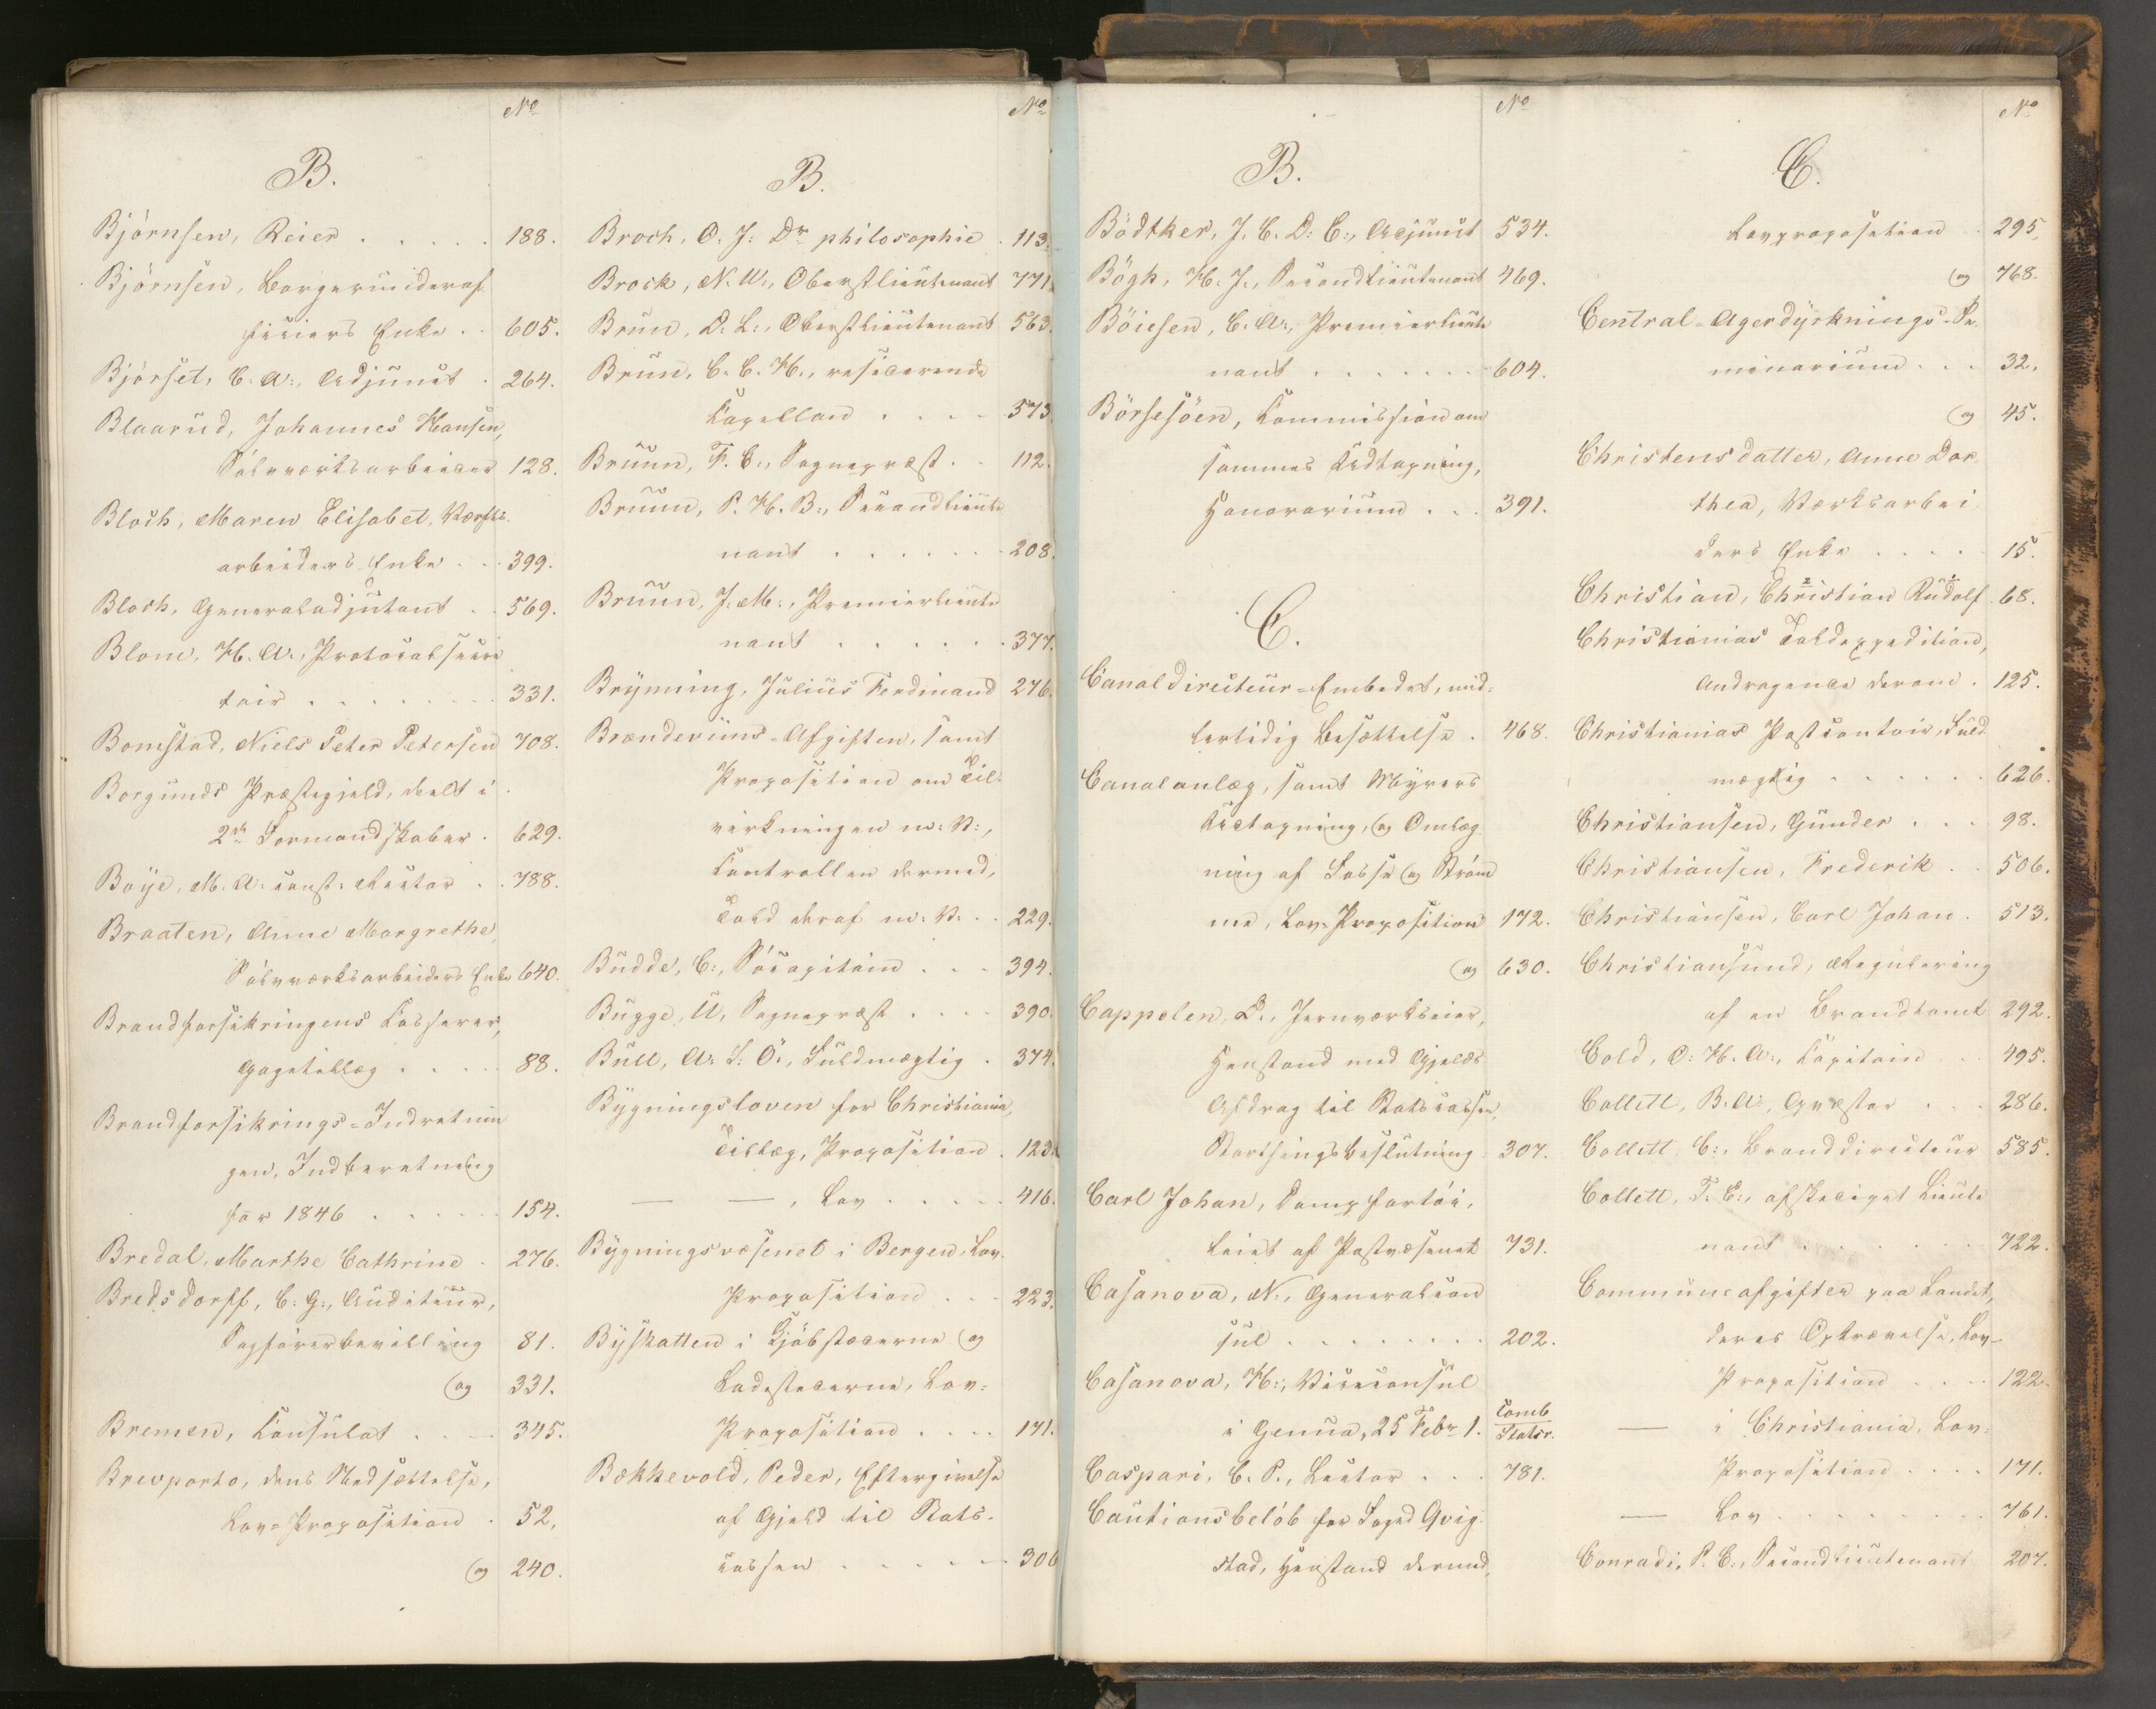 No
B.
Björnsen, Reier . . . . . 188.
Björnsen, Borgermideraf
ficiers Enke . . 605.
Björset, C. A., Adjunct . 264.
Blaarud, Johannes Hansen,
Sölvverksarbeider 128.
Bloch, Maren Elisabet, Værks
arbeiders Enke . . 399.
Bloch, Generaladjutant . . 569.
Blom, H. A., Protocolsecre
tair . . . . . . . . 331.
Bomstad, Niels Peter Petersen 708.
Borgunds Præstegjeld, deelt i
2de Formandskaber . 629.
Boye, M. A. const: Rector . . 788.
Braaten, Anne Margrethe,
Sölvværksarbeiders Enke 640.
Brandforsikringens Casserer,
Gagetillæg . . . . . 88.
Brandforsikrings=Indretnin
gen, Indberetning
for 1846 . . . . . . 154.
Bredal, Marthe Cathrine . 276.
Bredsdorff, C: G:, Auditeur,
Sagförerbevilling 81.
og 331.
Bremen, Consulat . . . 345.
Brevporto, dens Nedsættelse,
Lov=Proposition . 52,
og 240.
No
B.
Broch, O. J: Dr philosophie . 113.
Brock, N. W:, Oberstlieutenant 771.
Brun, D. L:, Oberstlieutenant 563.
Brun, C. C. H., residerende
Capellan . . . . 573.
Bruun, F. C., Sognepræst . . 112.
Bruun, P. H. B:, Secondlieute
nant . . . . . . . 208.
Bruun, J. M:, Premierlieute
nant . . . . . . 377.
Brynning, Julius Ferdinand 276.
Brændeviins=Afgiften, samt
Proposition om Til=
virkningen m: V:,
Controllen dermed,
Told deraf m: V: . . 229.
Budde, C:, Söcapitain . . . 394.
Bugge, U, Sognepræst . . . . 390.
Bull, A: S: O:, Fuldmægtig . 374.
Bygningsloven for Christiania,
Tillæg, Proposition . 123.
— — , Lov . . . . . 416.
Bygningsvæsenet i Bergen, Lov=
Proposition . . . 223.
Byskatten i Kjöbstæderne og
Ladestederne, Lov=
Proposition . . . . 171.
Bækkevold, Peder, Eftergivelse
af Gjeld til Stats=
cassen . . . . . . 306
No
B.
Bödtker, J. C. D: C:, Adjunct 534.
Bögh, H. J., Secondlieutenant 469.
Böiesen, C. A:, Premierlieute
nant . . . . . . . 604.
Börsesöen, Commission om
sammes Udtapning,
Honorarium . . . 391.
C.
Canaldirecteur=Embedet, mid=
lertidig Besættelse . 468.
Canalanlæg, samt Myrers
Udtapning, og Omlæg
ning af Fosse og Ström
me, Lov=Proposition 172.
og 630.
Cappelen, D., Jernværkseier,
Henstand med Gjelds
Afdrag til Statscassen,
Storthingsbeslutning 307.
Carl Johan, Dampfartöi,
leiet af Postvæsenet 731.
Casanova, N:, Generalcon
sul . . . . . . . . 202.
Casanova, H:, Viceconsul
i Genua, 25 Febr 1. Comb Statsr.
Caspari, C. P., Lector . . . 781.
Cautionsbelöb for Foged Qvig=
stad, Henstand dermed,
No
C.
Lovproposition . 295.
og 768.
Central=Agerdyrknings=Se
minarium . . . 32.
og 45.
Christensdatter, Anne Dor
thea, Værksarbei
ders Enke . . . . . 15.
Christian, Christian Rudolf 68.
Christianias Toldexpedition,
Andragende derom . 125.
Christianias Postcontoir, Fuld
mægtig . . . . . . 626.
Christiansen, Gunder . . . 98.
Christiansen, Frederik . . 506.
Christiansen, Carl Johan . 513.
Christiansund, Regulering
af en Brandtomt 292.
Cold, O: H. A:, Capitain . . 495.
Collett, B. A:, Qvæstor . . . 286.
Collett C:, Branddirecteur 585.
Collett, T. C:, afskediget Lieute
nant . . . . . . 722.
Communeafgifter paa Landet,
deres Opkrævelse, Lov=
Proposition . . . . 122.
— i Christiania, Lov=
Proposition . . . . 171.
— Lov . . . . . . . . . 761.
Conradi, P. C:, Secondlieutenant 207.